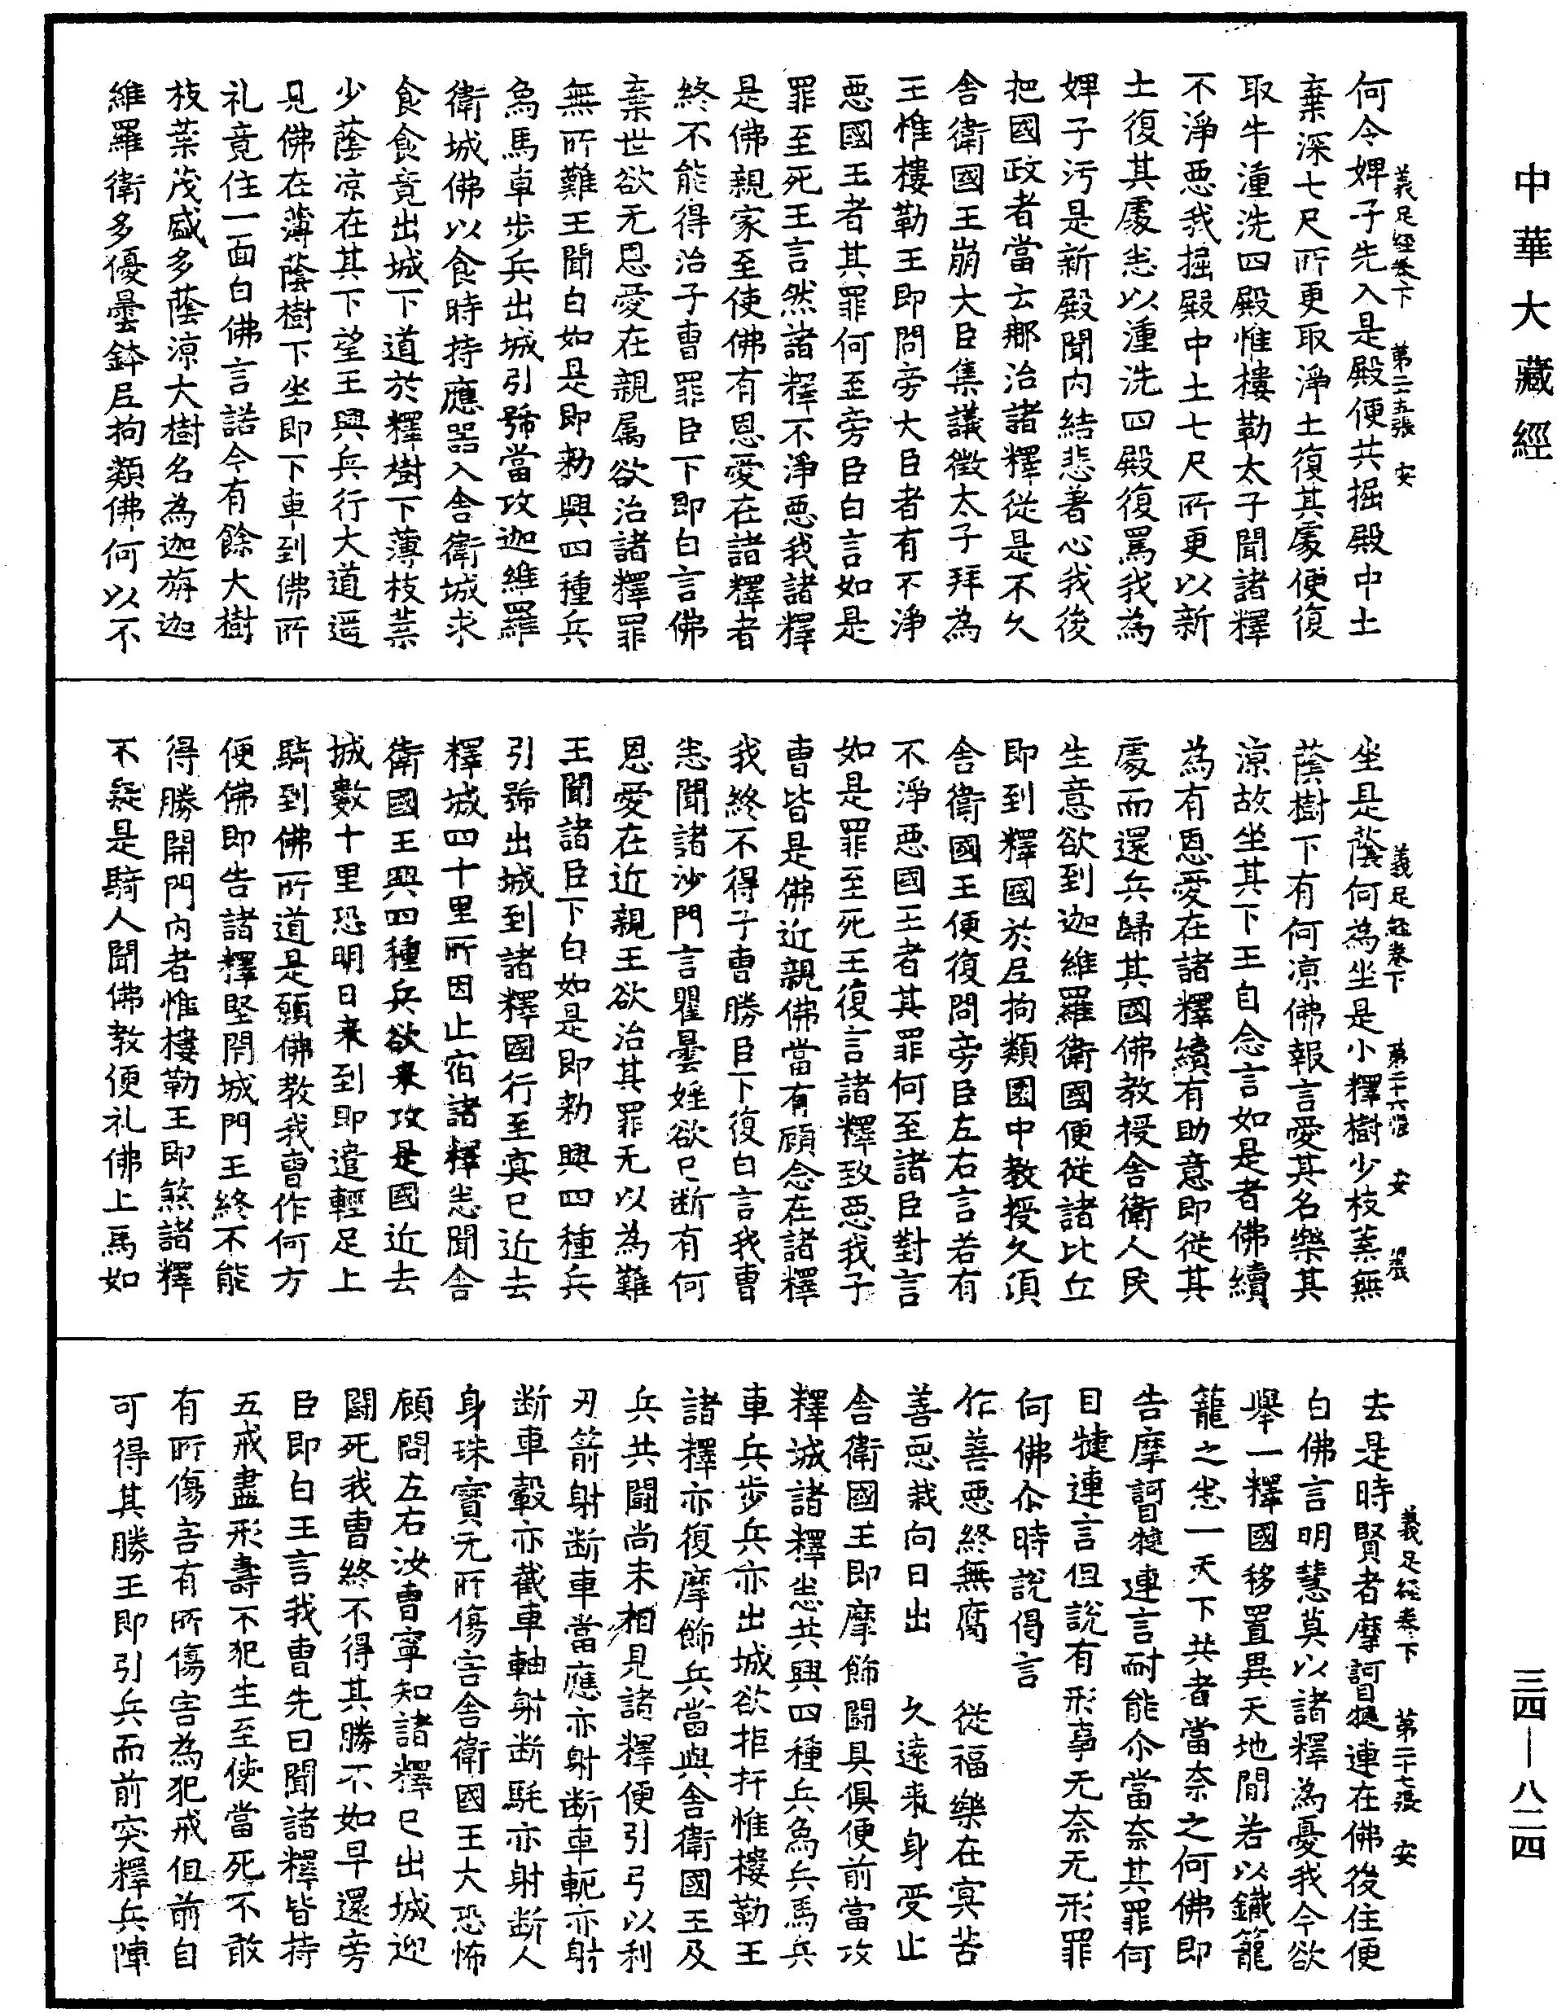 中華大藏經
義足經卷下　第二十五張　安
何令婢子先入是殿便共掘殿中土
棄深七尺所更取淨土復其處便復
取牛湩洗四殿惟樓勒太子聞諸釋
不淨惡我掘殿中土七尺所更以新
土復其處悉以湩洗四殿復罵我為
婢子污是新殿聞內結悲著心我後
把國政者當云那治諸釋從是不久
舍衛國王崩大臣集議徵太子拜為
王惟樓勒王即問旁大臣者有不淨
惡國王者其罪何至旁臣白言如是
罪至死王言然諸釋不淨惡我諸釋
是佛親家至使佛有恩愛在諸釋者
終不能得治子曹罪臣下即白言佛
棄世欲无恩愛在親属欲治諸釋罪
無所難王聞白如是即勑興四種兵
象馬車步兵出城引號當攻迦維羅
衛城佛以食時持應器入舍衛城求
食食竟出城下道於釋樹下薄枝葉
少蔭凉在其下望王興兵行大道遥
見佛在薄蔭樹下坐即下車到佛所
礼竟住一面白佛言諾今有餘大樹
枝葉茂盛多蔭涼大樹名為迦旃迦
維羅衛多優曇鉢尼拘類佛何以不
義足經卷下　第二十六張　安
坐是蔭何為坐是小釋樹少枝葉無
蔭樹下有何凉佛報言愛其名樂其
涼故坐其下王自念言如是者佛續
為有恩愛在諸釋續有助意即從其
處而還兵歸其國佛教授舍衛人民
生意欲到迦維羅衛國便從諸比丘
即到釋國於尼拘類園中教授久須
舍衛國王便復問旁臣左右言若有
不淨惡國王者其罪何至諸臣對言
如是罪至死王復言諸釋致惡我子
曹皆是佛近親佛當有顧念在諸釋
我終不得子曹勝臣下復白言我曹
悉聞諸沙門言瞿曇婬欲已断有何
恩愛在近親王欲治其罪无以為難
王聞諸臣下白如是即勑興四種兵
引號出城到諸釋國行至㝠已近去
釋城四十里所因止宿諸釋悉聞舍
衛國王興四種兵欲来攻是國近去
城數十里恐明日来到即遣輕足上
騎到佛所道是願佛教我曹作何方
便佛即告諸釋堅閉城門王終不能
得勝開門內者惟樓勒王即煞諸釋
不疑是騎人聞佛教便礼佛上馬如
義足經卷下　第二十七張　安
去是時賢者摩訶目揵連在佛後住便
白佛言明慧莫以諸釋為憂我今欲
舉一釋國移置異天地閒若以鐵籠
籠之悉一天下共者當奈之何佛即
告摩訶目揵連言耐能尒當奈其罪何
目揵連言但說有形事无奈无形罪
何佛尒時說偈言
作善惡終無腐　從福樂在㝠苦
善惡栽向日出　久遠来身受止
舍衛國王即摩飾闘具俱便前當攻
釋城諸釋悉共興四種兵象兵馬兵
車兵步兵亦出城欲拒扞惟樓勒王
諸釋亦復摩飾兵當與舍衛國王及
兵共闘尚未相見諸釋便引弓以利
刃箭射断車當應亦射断車軛亦射
断車轂亦截車軸射断髦亦射断人
身珠寶无所傷害舍衛國王大恐怖
顧問左右汝曹寧知諸釋已出城迎
闘死我曹終不得其勝不如早還旁
臣即白王言我曹先曰聞諸釋皆持
五戒盡形壽不犯生至使當死不敢
有所傷害有所傷害為犯戒但前自
可得其勝王即引兵而前突釋兵陣
三四—八二四